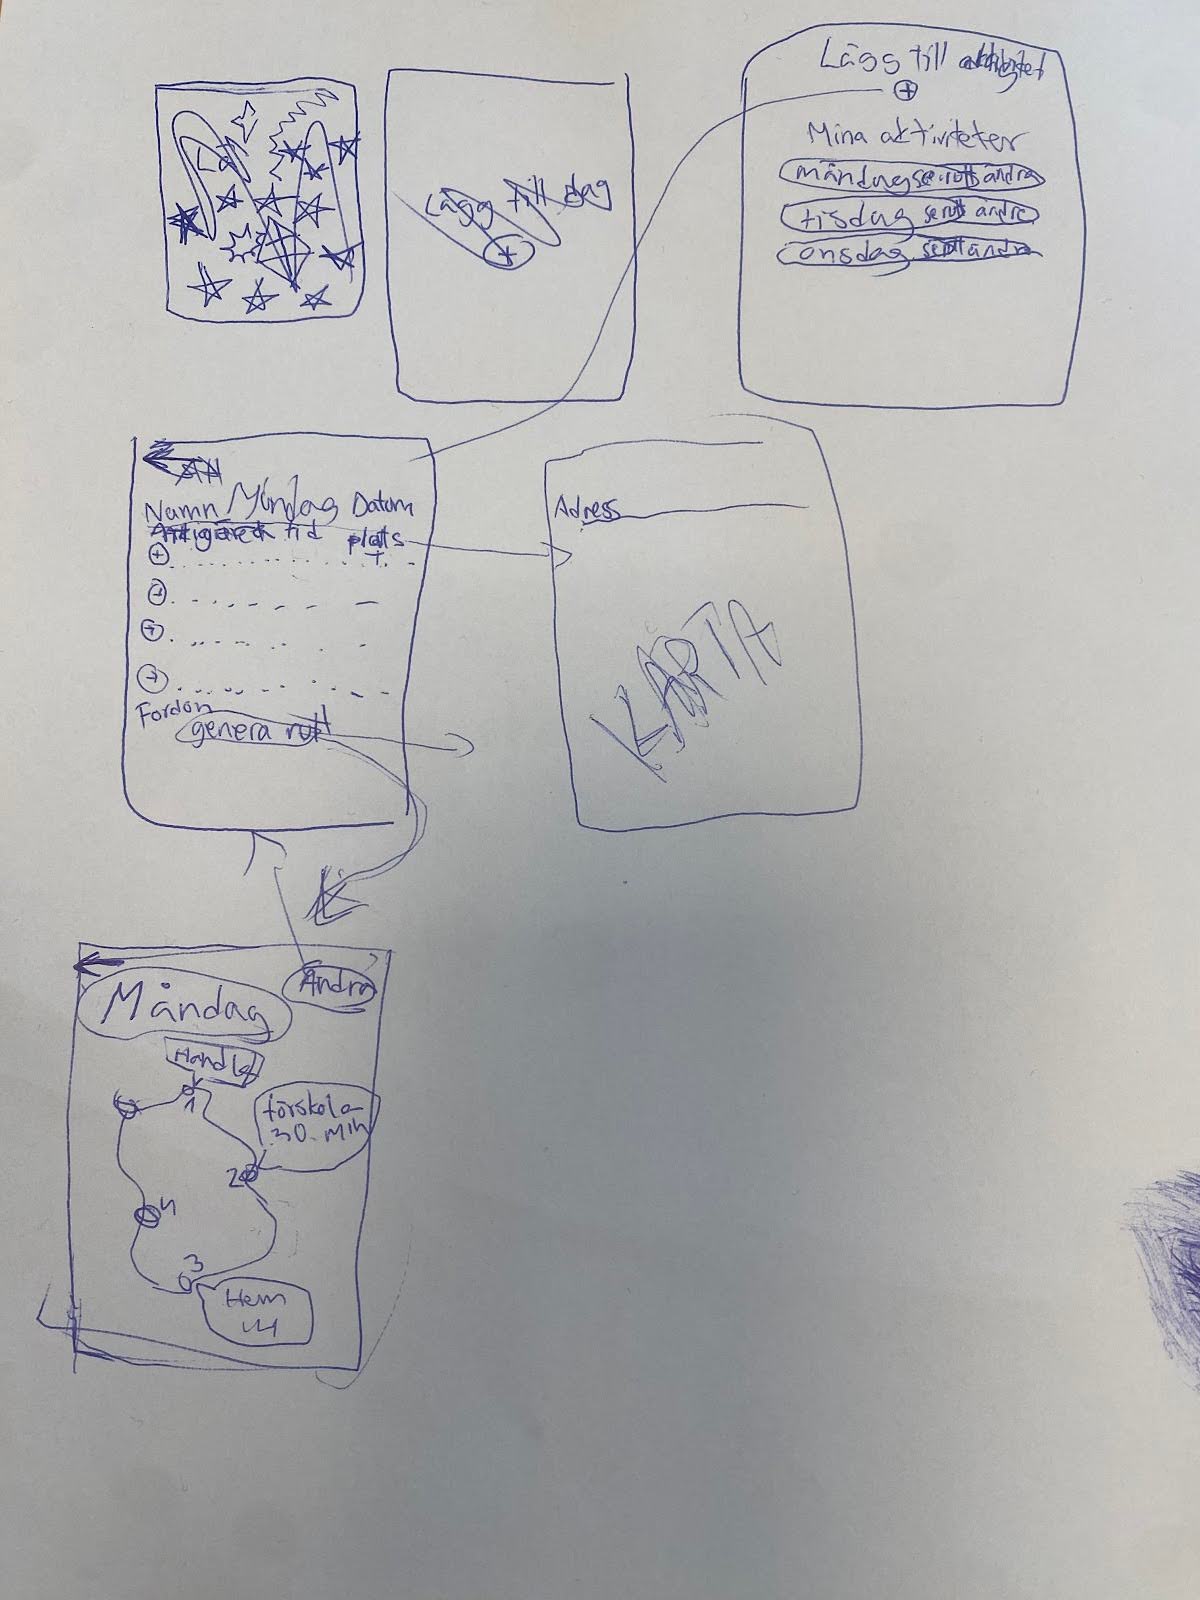 Lägg till dag
+
Lägg till aktivitet
+
Mina aktiviteter
måndag se rutt ändra
tisdag se rutt ändra
onsdag se rutt ändra
Namn Måndag Datum
tid plats
+
+
+
+
+
Fordon
genera rutt
Adress
KARTA
Ändra
Måndag
Handla
1
förskola
30. min
2
3
4
Hem